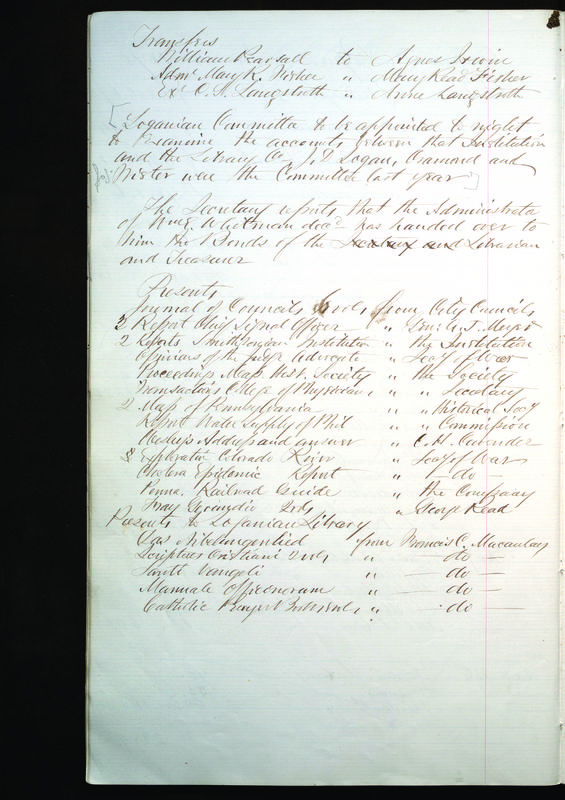 Transfers
William Pearsall to Agnes Irwin
Admr Mary R. Fisher " Mary Rae Fisher
Exr C. S. Langstroth " Anna Langstroth
[Loganian Committee to be appointed to night
to Examine the accounts between that Institution
and the Library Co J. D. Logan, Ormond and
Wister were the Committee last year]
The Secretary reports that the Administrator
of Wm E. Whitman decd has handed over to
him the Bonds of the Secretary and Librarian
and Treasurer
Presents
Journal of Councils vols from City Councils
2 Report Chief Signal Officer " Genl A. J. Meyer
2 Reports Smithsonian Institution " the Institution
Opinions of the Judge Advocate " Secy of War
Proceedings Mass. Hist. Society " the Society
Transactions College of Physicians " " Secretary
2 Map of Pennsylvania " " Historical Socy
Report Water Supply of Phil " " Commission
Address and answer " C. H. Cavender
8 Exploration Colorado River " Secy of War
Cholera Epidemic Report " — do —
Penna. Railroad Guide " the Company
Fray Gerundio 2 vols " George Read
Presents to Loganian Library
Das Nibelungenlied from Francis C. Macauley
Scriptores Cristiani 2 vols " — do —
Santi Vangeli " — do —
Manuale Officiorum " — do —
Catholic Prayer " — do —